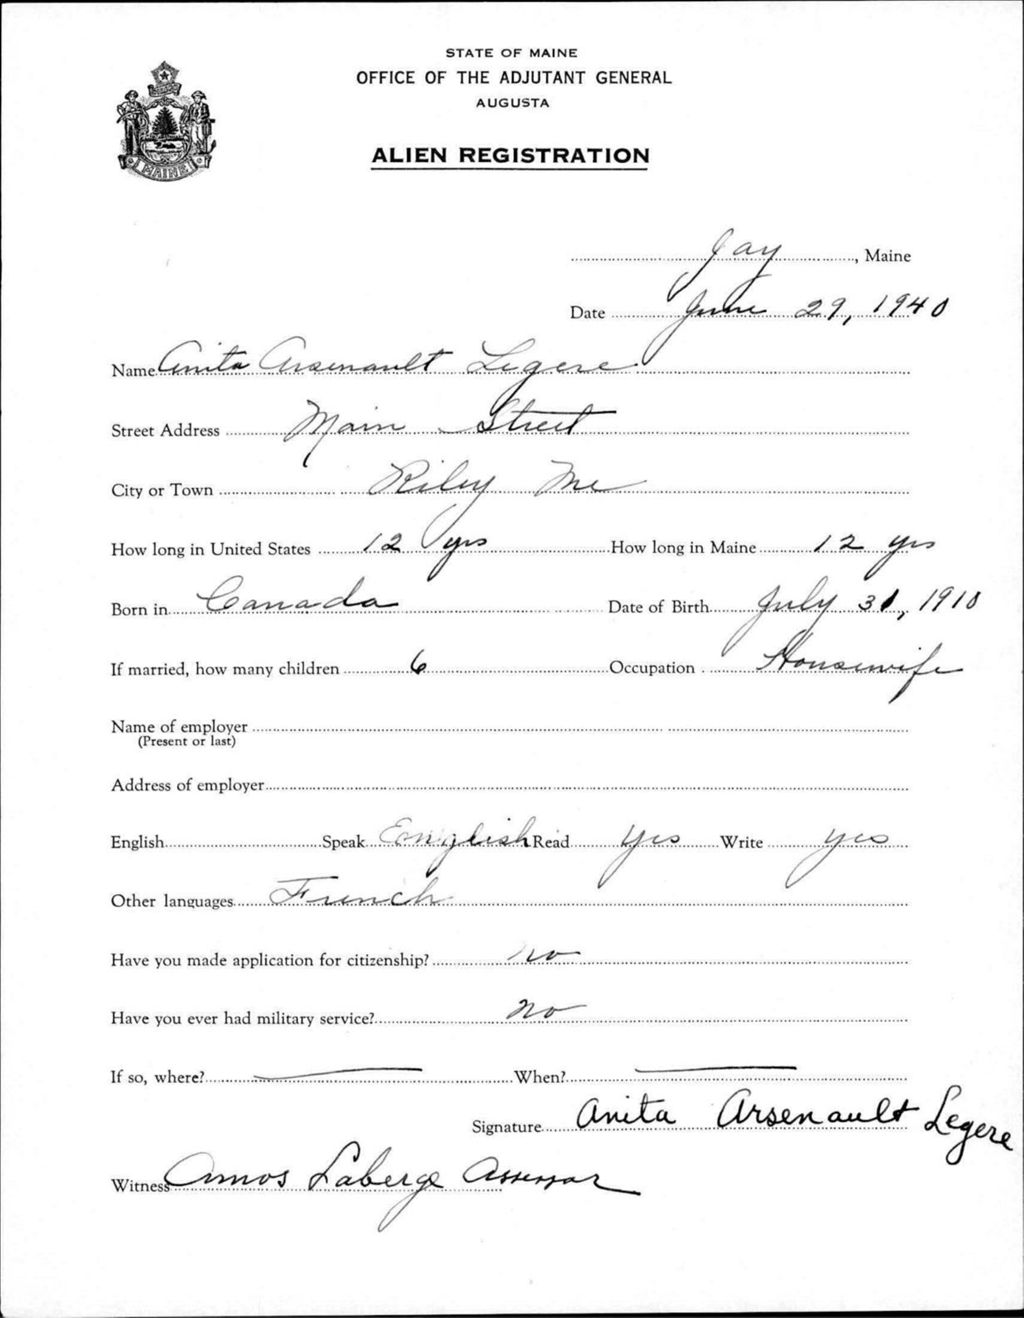 STATE OF MAINE
OFFICE OF THE ADJUTANT GENERAL
AUGUSTA
MAINE
ALIEN REGISTRATION
Jay, Maine
Date June 29, 1940
Name Anita Arsenault Legere
Street Address Main Street
City or Town Riley Me
How long in United States 12 yrs How long in Maine 12 yrs
Born in Canada Date of Birth July 31, 1910
If married, how many children 6 Occupation Housewife
Name of employer
(Present or last)
Address of employer
English Speak English Read yes Write yes
Other languages French
Have you made application for citizenship? no
Have you ever had military service? no
If so, where? — When? —
Signature Anita Arsenault Legere
Witness Amos Laberge Assessor